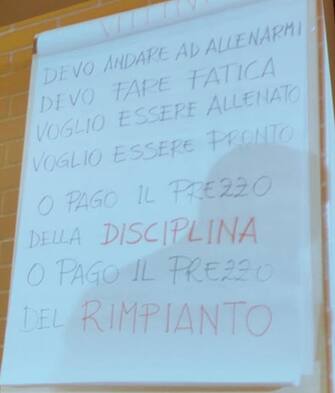 DEVO ANDARE AD ALLENARMI
DEVO FARE FATICA
VOGLIO ESSERE ALLENATO
VOGLIO ESSERE PRONTO
O PAGO IL PREZZO
DELLA DISCIPLINA
O PAGO IL PREZZO
DEL RIMPIANTO